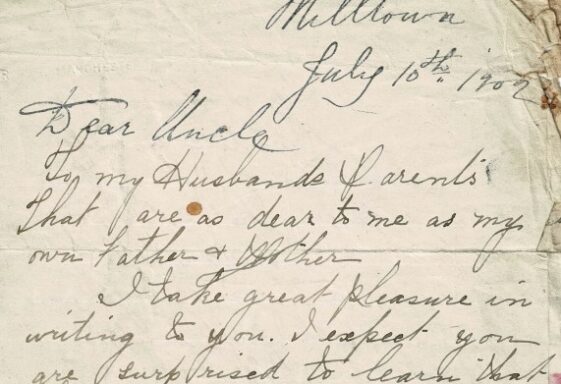 Milltown
July 10th 1902
Dear Uncle
To my Husbands Parents
that are as dear to me as my
own Father & Mother
I take great pleasure in
writing to you. I expect you
are surprised to learn that